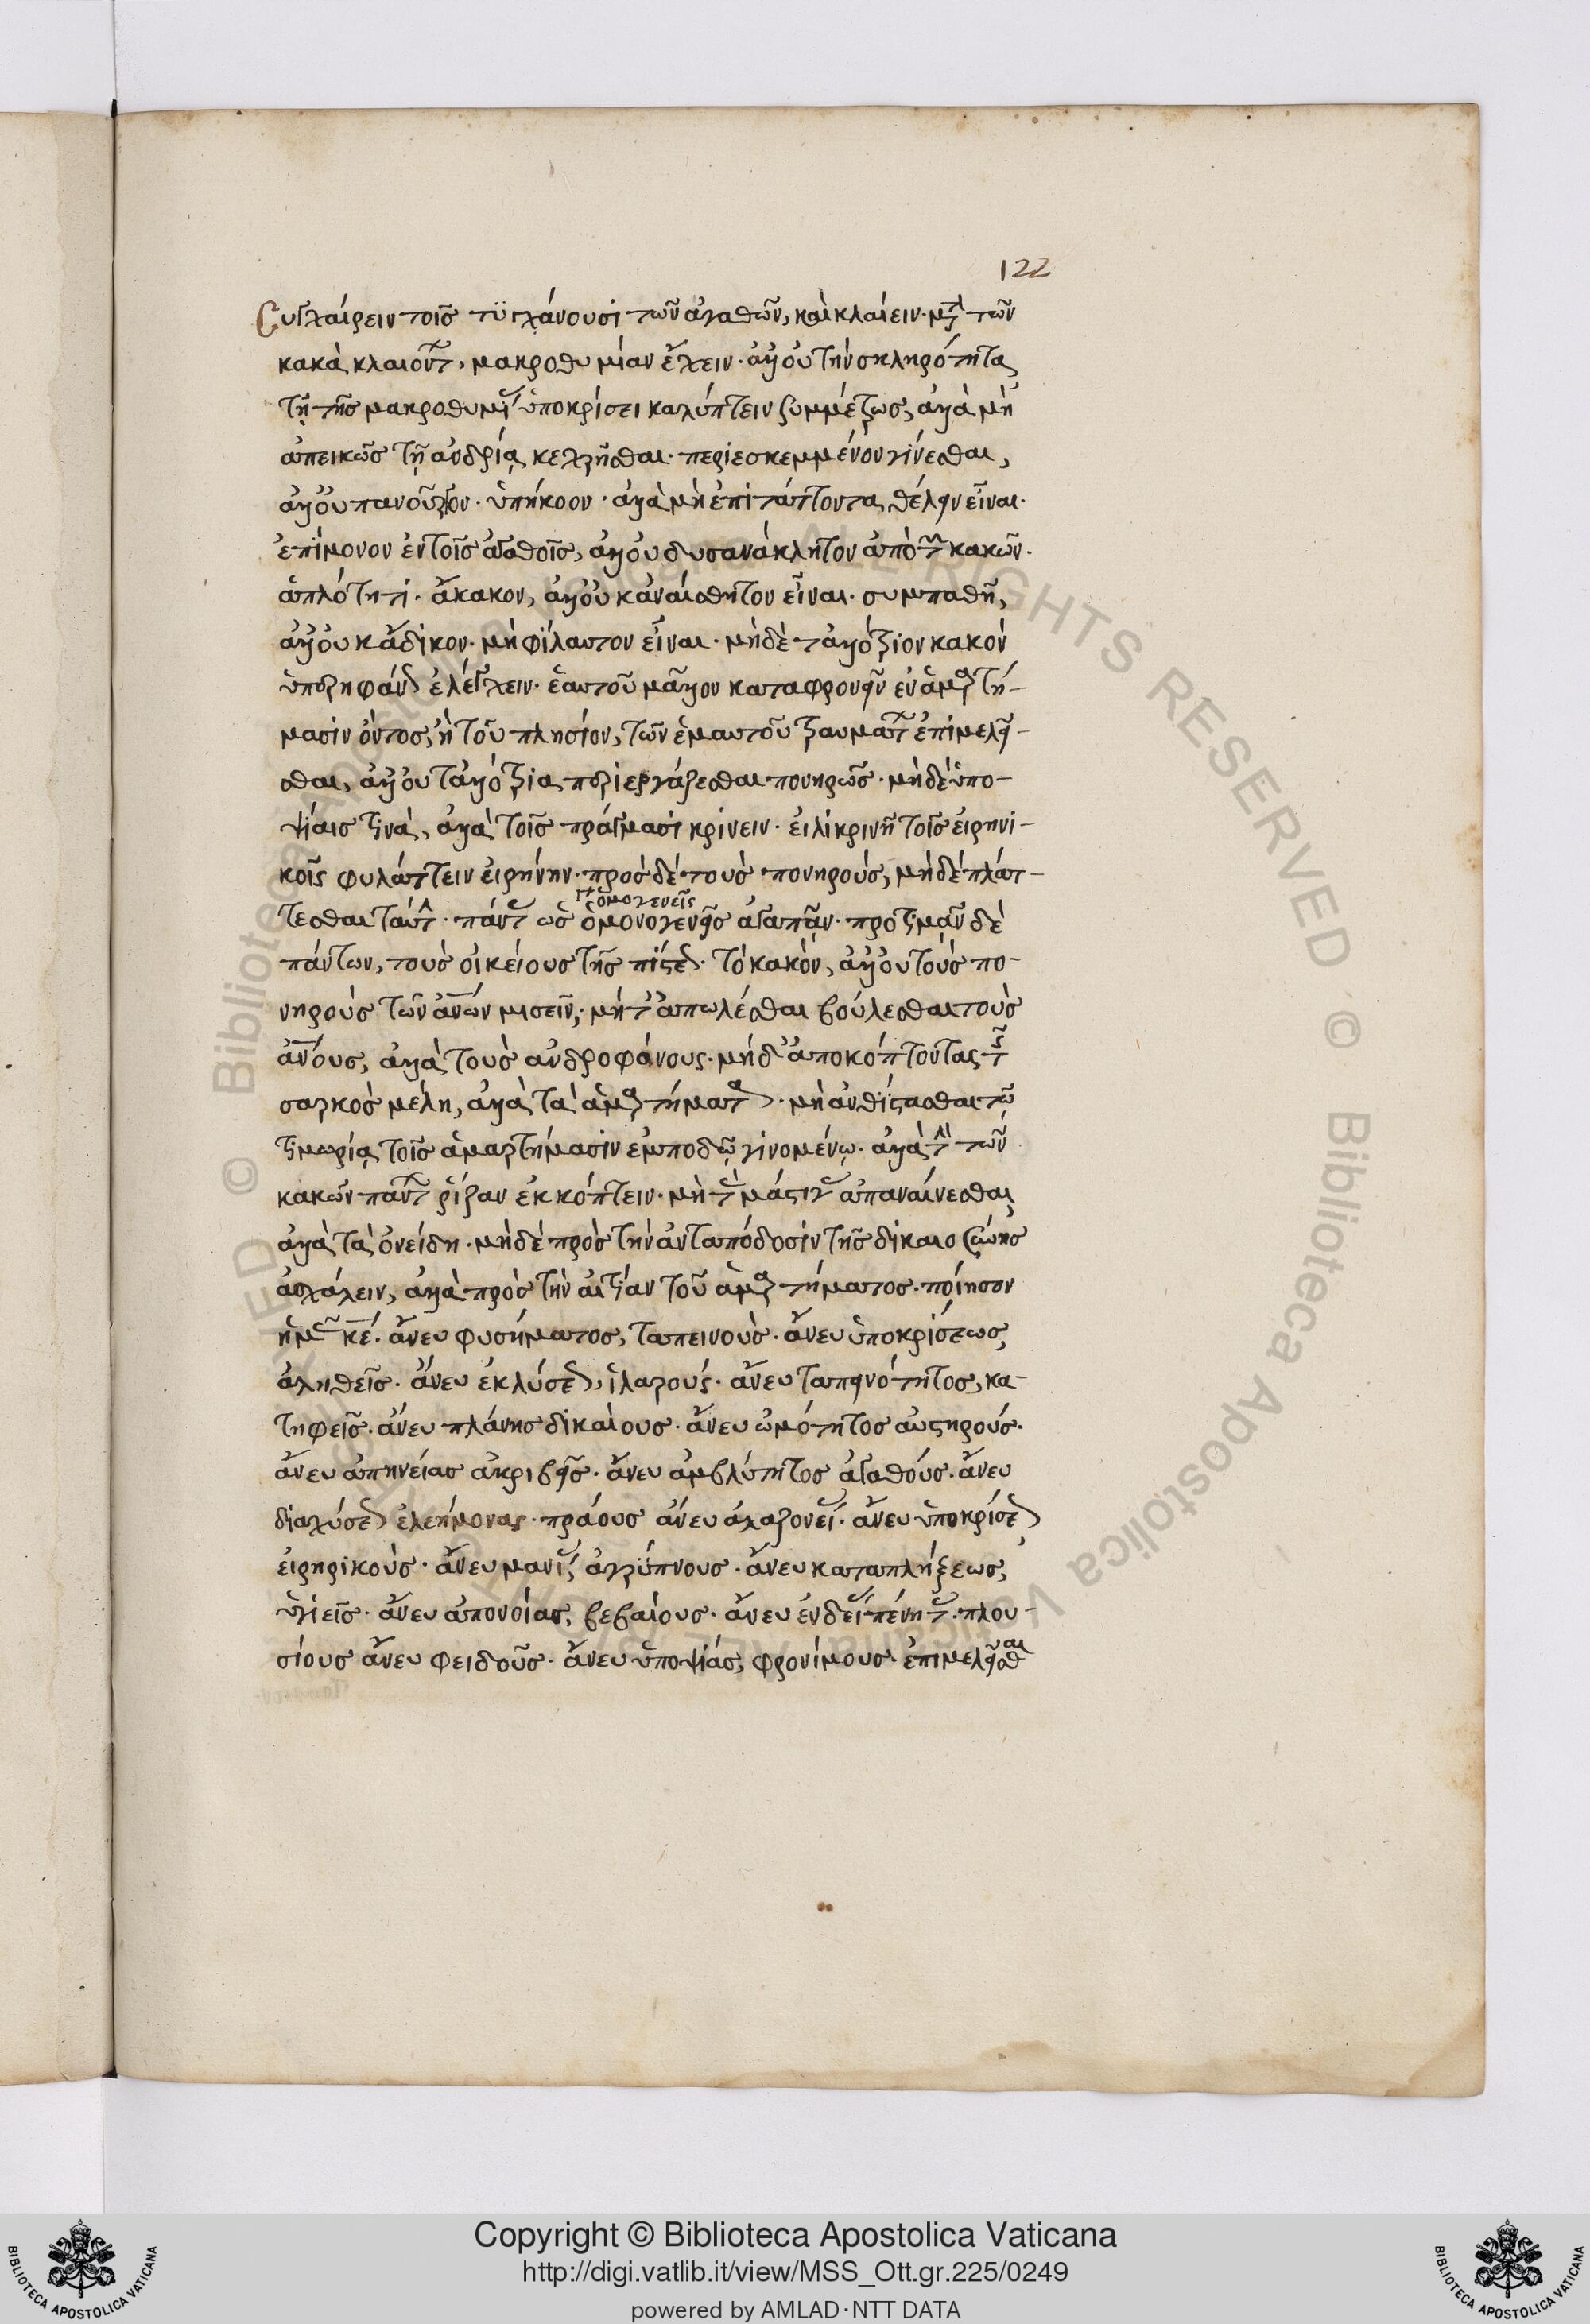 122
Συγχαίρειν τοῖς τϋγχάνουσι τῶν ἀγαθῶν, καὶ κλαίειν μετὰ τῶν
κακὰ κλαιόντων, μακροθυμίαν ἔχειν· ἀλλ' οὐ τὴν σκληρότητα
τῇ τῆς μακροθυμίας ὑποκρίσει καλύπτειν συμμέτρως, ἀλλὰ μὴ
ἀπεικῶς τῇ ἀνδρίᾳ κεχρῆσθαι· περιεσκεμμένον γίνεσθαι,
ἀλλ' οὐ πανοῦργον· ὑπήκοον· ἀλλὰ μὴ ἐπιτάττοντα θέλειν εἶναι·
ἐπίμονον ἐν τοῖς ἀγαθοῖς, ἀλλ' οὐ δυσανάκλητον ἀπὸ τῶν κακῶν·
ἁπλότητι· ἄκακον, ἀλλ' οὐκ ἀναίσθητον εἶναι· συμπαθῆ,
ἀλλ' οὐκ ἄδικον· μὴ φίλαυτον εἶναι· μηδὲ τἀλλότριον κακὸν
ὑπερηφάνως ἐλέγχειν· ἑαυτοῦ μᾶλλον καταφρονεῖν ἐν ἁμαρτή-
μασιν ὄντος, ἢ τοῦ πλησίον, τῶν ἐμαυτοῦ τραυμάτων ἐπιμελεῖ-
σθαι, ἀλλ' οὐ τἀλλότρια περιεργάζεσθαι πονηρῶς· μηδὲ ὑπο-
ψίαις τινὰ, ἀλλὰ τοῖς πράγμασι κρίνειν· εἰλικρινῆ τοῖς εἰρηνι-
κοῖς φυλάττειν εἰρήνην· πρὸς δὲ τοὺς πονηρούς, μηδὲ πλάτ-
γρ. ὁμογενεῖς
τεσθαι ταύτην· πάντας ὡς ὁμονογενεῖς ἀγαπᾶν· προτιμᾶν δὲ
πάντων, τοὺς οἰκείους τῆς πίστεως· τὸ κακὸν, ἀλλ' οὐ τοὺς πο-
νηροὺς τῶν ἀνων μισεῖν· μήτ' ἀπωλέσθαι βούλεσθαι τοὺς
ἀνους, ἀλλὰ τοὺς ἀνδροφόνους· μήδ' ἀποκόπτοντας τῆς
σαρκὸς μέλη, ἀλλὰ τὰ ἁμαρτήματα· μὴ ἀνθίστασθαι τῷ
τιμωρίᾳ τοῖς ἁμαρτήμασιν ἐμποδῷ γινομένῳ· ἀλλὰ τὴν τῶν
κακῶν πάντων ῥίζαν ἐκκόπτειν· μὴ τὰς μάστιγας ἀπαναίνεσθαι
ἀλλὰ τὰ ὀνείδη· μηδὲ πρὸς τὴν ἀνταπόδοσιν τῆς δικαιοσύνης
ἀσχάλλειν, ἀλλὰ πρὸς τὴν αἰτίαν τοῦ ἁμαρτήματος· ποίησον
ἡμᾶς κε· ἄνευ φυσήματος, ταπεινούς· ἄνευ ὑποκρίσεως
ἀληθεῖς· ἄνευ ἐκλύσεως, ἱλαρούς· ἄνευ ταπεινότητος, κα-
τηφεῖς· ἄνευ πλάνης δικαίους· ἄνευ ὠμότητος αὐστηρούς·
ἄνευ ἀπηνείας ἀκριβεῖς· ἄνευ ἀμβλύτητος ἀγαθούς· ἄνευ
διαλύσεως ἐλεήμονας· πράους ἄνευ ἀλαζονείας· ἄνευ ὑποκρίσεως
εἰρηρικοὺς· ἄνευ μανίας, ἀγρύπνους· ἄνευ καταπλήξεως,
ὑγιεῖς· ἄνευ ἀπονοίας, βεβαίους· ἄνευ ἐνδείας πένητας· πλου-
σίους ἄνευ φειδοῦς· ἄνευ ὑποψίας, φρονίμους· ἐπιμελεῖσθαι
Copyright © Biblioteca Apostolica Vaticana
http://digi.vatlib.it/view/MSS_Ott.gr.225/0249
powered by AMLAD·NTT DATA
BIBLIOTECA APOSTOLICA VATICANA
BIBLIOTECA APOSTOLICA VATICANA